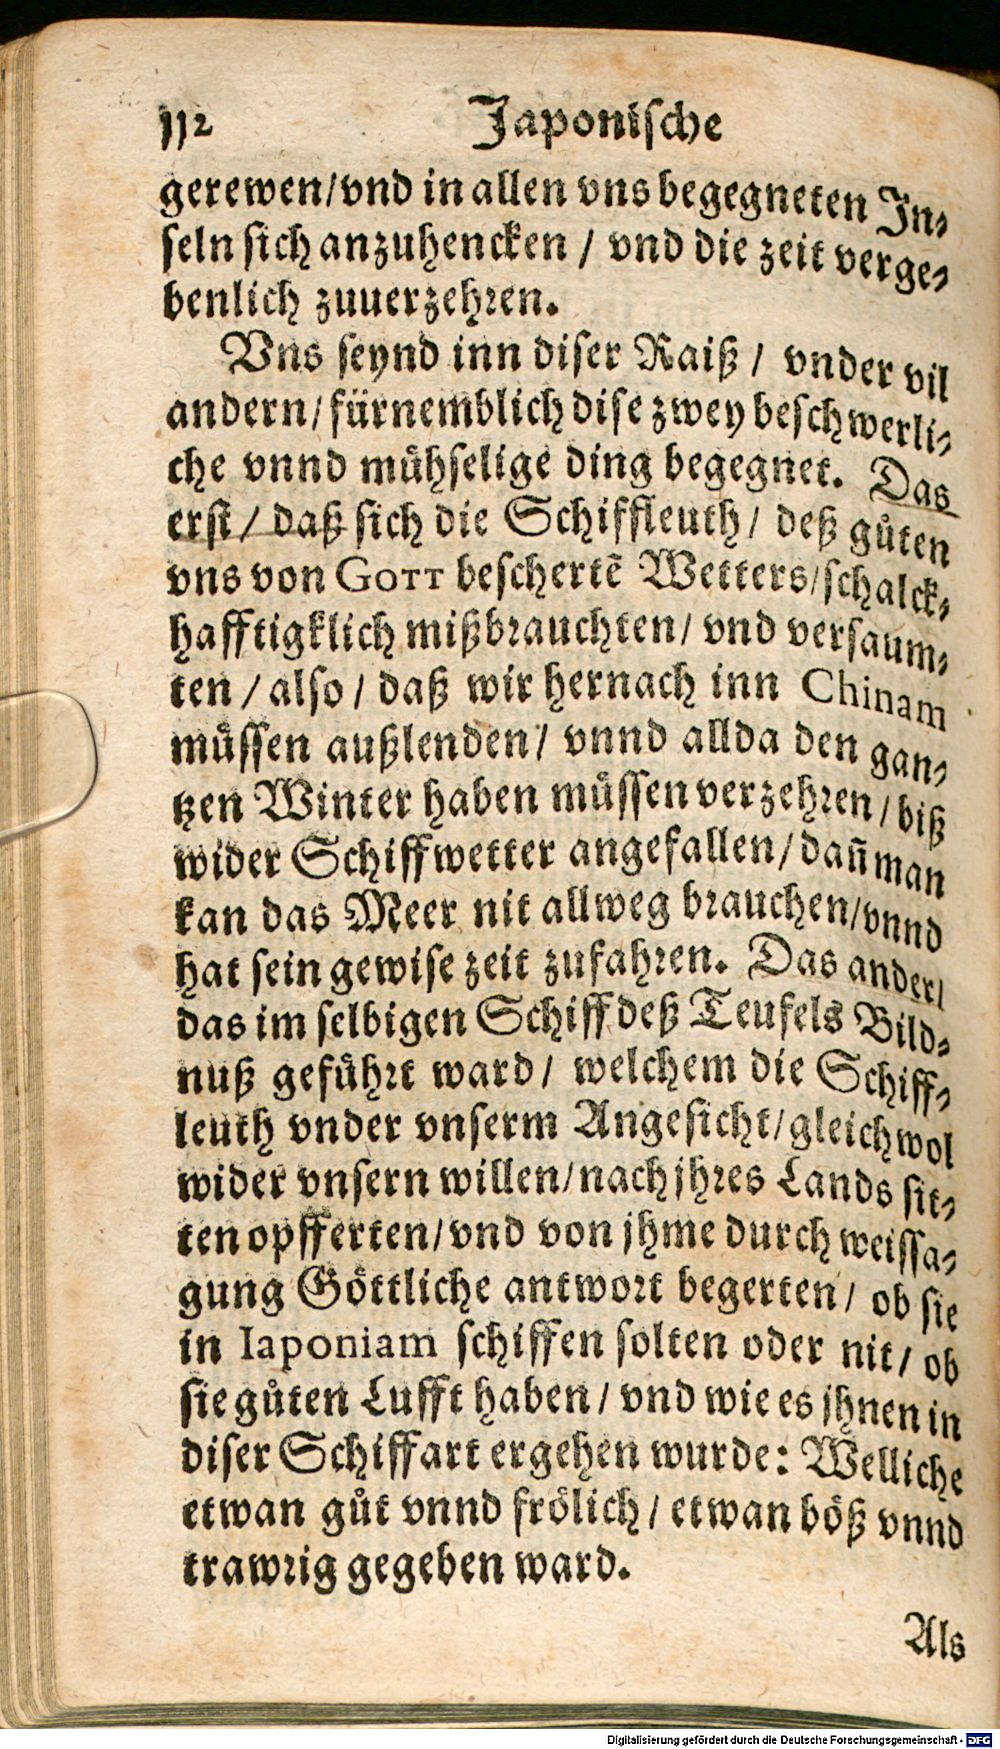 112 Japonische
gerewen/vnd in allen vns begegneten In-
seln sich anzuhencken / vnd die zeit verge-
benlich zuuerzehren.
Vns seynd inn diser Raiß / vnder vil
andern/fürnemblich dise zwey beschwerli-
che vnnd mühselige ding begegnet. Das
erst/ daß sich die Schiffleuth/ deß gůten
vns von GOTT beschertẽ Wetters/schalck-
hafftigklich mißbrauchten/ vnd versaum-
ten / also / daß wir hernach inn Chinam
müssen außlenden/ vnnd allda den gan-
tzen Winter haben müssen verzehren/biß
wider Schiffwetter angefallen/dañ man
kan das Meer nit allweg brauchen/vnnd
hat sein gewise zeit zufahren. Das ander/
das im selbigen Schiff deß Teufels Bild-
nuß geführt ward/ welchem die Schiff-
leuth vnder vnserm Angesicht/gleichwol
wider vnsern willen/nach jhres Lands sit-
ten opfferten/vnd von jhme durch weissa-
gung Göttliche antwort begerten/ ob sie
in Iaponiam schiffen solten oder nit/ ob
sie gůten Lufft haben/ vnd wie es jhnen in
diser Schiffart ergehen wurde: Welliche
etwan gůt vnnd frölich/etwan böß vnnd
trawrig gegeben ward.
Als
Digitalisierung gefördert durch die Deutsche Forschungsgemeinschaft - DFG